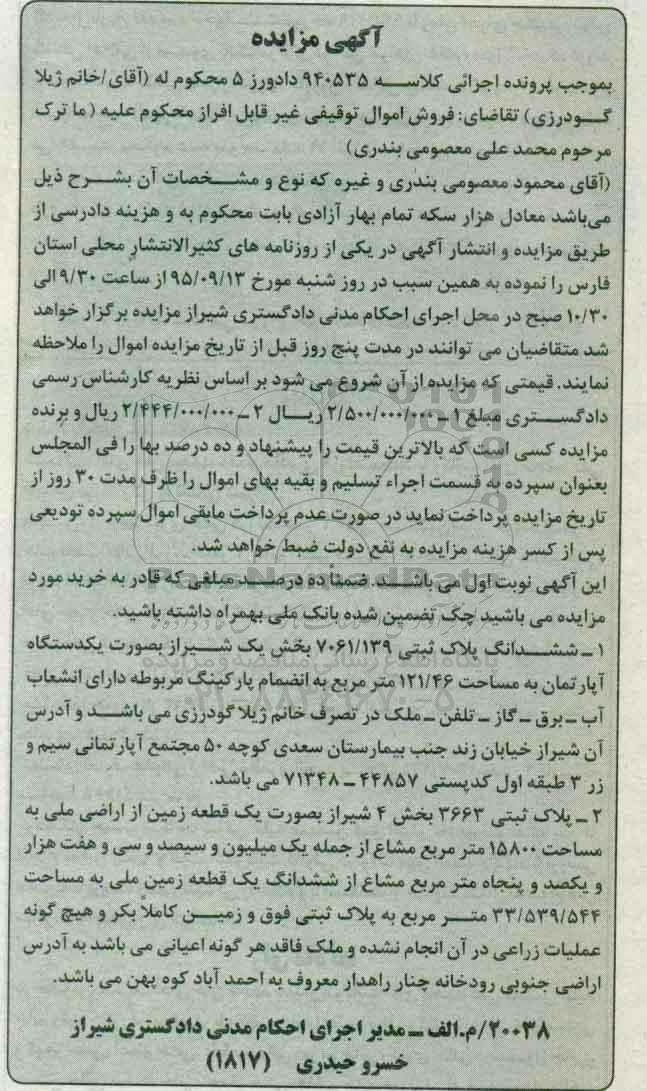 آگهی مزایده
بموجب پرونده اجرائی کلاسه ۹۴۰۵۳۵ دادورز ۵ محکوم له (آقای/خانم ژیلا
گودرزی) تقاضای: فروش اموال توقیفی غیر قابل افراز محکوم علیه (ما ترک
مرحوم محمد علی معصومی بندری)
(آقای محمود معصومی بندری و غیره که نوع و مشخصات آن بشرح ذیل
می‌باشد معادل هزار سکه تمام بهار آزادی بابت محکوم به و هزینه دادرسی از
طریق مزایده و انتشار آگهی در یکی از روزنامه های کثیرالانتشار محلی استان
فارس را نموده به همین سبب در روز شنبه مورخ ۹۵/۰۹/۱۳ از ساعت ۹/۳۰ الی
۱۰/۳۰ صبح در محل اجرای احکام مدنی دادگستری شیراز مزایده برگزار خواهد
شد متقاضیان می توانند در مدت پنج روز قبل از تاریخ مزایده اموال را ملاحظه
نمایند. قیمتی که مزایده از آن شروع می شود بر اساس نظریه کارشناس رسمی
دادگستری مبلغ ۱ ـ ۲/۵۰۰/۰۰۰/۰۰۰ ریال ۲ ـ ۲/۴۴۴/۰۰۰/۰۰۰ ریال و برنده
مزایده کسی است که بالاترین قیمت را پیشنهاد و ده درصد بها را فی المجلس
بعنوان سپرده به قسمت اجراء تسلیم و بقیه بهای اموال را ظرف مدت ۳۰ روز از
تاریخ مزایده پرداخت نماید در صورت عدم پرداخت مابقی اموال سپرده تودیعی
پس از کسر هزینه مزایده به نفع دولت ضبط خواهد شد.
این آگهی نوبت اول می باشد. ضمنا ده درصد مبلغی که قادر به خرید مورد
مزایده می باشید چک تضمین شده بانک ملی بهمراه داشته باشید.
۱ ـ ششدانگ پلاک ثبتی ۷۰۶۱/۱۳۹ بخش یک شیراز بصورت یکدستگاه
آپارتمان به مساحت ۱۲۱/۴۶ متر مربع به انضمام پارکینگ مربوطه دارای انشعاب
آب ـ برق ـ گاز ـ تلفن ـ ملک در تصرف خانم ژیلا گودرزی می باشد و آدرس
آن شیراز خیابان زند جنب بیمارستان سعدی کوچه ۵۰ مجتمع آپارتمانی سیم و
زر ۳ طبقه اول کدپستی ۴۴۸۵۷ ـ ۷۱۳۴۸ می باشد.
۲ ـ پلاک ثبتی ۳۶۶۳ بخش ۴ شیراز بصورت یک قطعه زمین از اراضی ملی به
مساحت ۱۵۸۰۰ متر مربع مشاع از جمله یک میلیون و سیصد و سی و هفت هزار
و یکصد و پنجاه متر مربع مشاع از ششدانگ یک قطعه زمین ملی به مساحت
۳۳/۵۳۹/۵۴۴ متر مربع به پلاک ثبتی فوق و زمین کاملاً بکر و هیچ گونه
عملیات زراعی در آن انجام نشده و ملک فاقد هر گونه اعیانی می باشد به آدرس
اراضی جنوبی رودخانه چنار راهدار معروف به احمد آباد کوه پهن می باشد.
۲۰۰۳۸/م.الف ـ مدیر اجرای احکام مدنی دادگستری شیراز
خسرو حیدری (۱۸۱۷)